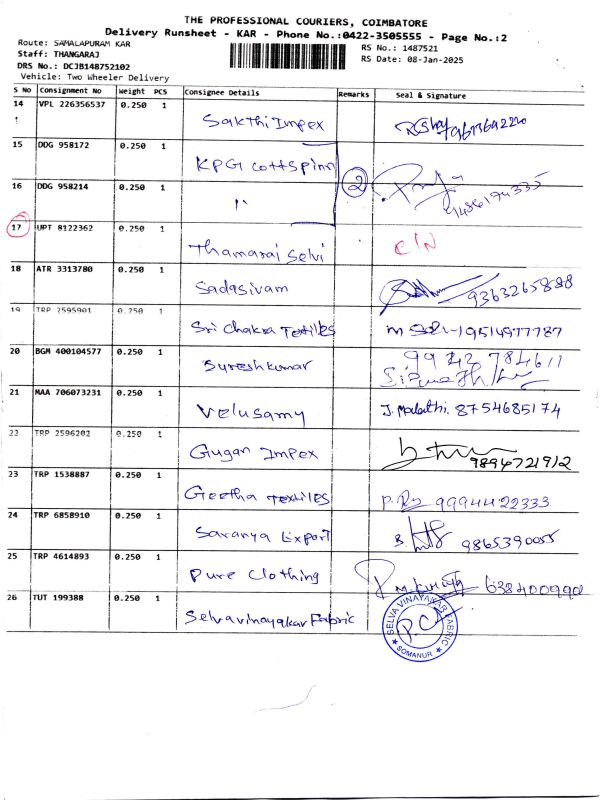 THE PROFESSIONAL COURIERS, COIMBATORE
Delivery Runsheet - KAR - Phone No.:0422-3505555 - Page No.:2
Route: SAMALAPURAM KAR
Staff: THANGARAJ
DRS No.: DCJB148752102
Vehicle: Two Wheeler Delivery
RS No.: 1487521
RS Date: 08-Jan-2025
S No Consignment No Weight PCS Consignee Details Remarks Seal & Signature
14 VPL 226356537 0.250 1
Sakthi Impex
15 DDG 958172 0.250 1
KPG Cottspinn
2
16 DDG 958214 0.250 1
"
9486174335
17 UPT 8122362 0.250 1
Thamarai Selvi
C/N
18 ATR 3313780 0.250 1
Sadasivam 9363265888
19 TRP 2595901 0.250 1
Sri Chakra Textiles 9514977787
20 BGM 400104577 0.250 1
Sureshkumar
99427 84611
21 MAA 706073231 0.250 1
Velusamy J. Malathi. 8754685174
22 TRP 2596202 0.250 1
Gugan Impex 9894721912
23 TRP 1538887 0.250 1
Geetha Textiles 9994422333
24 TRP 6858910 0.250 1
Saranya Export 9865390055
25 TRP 4614893 0.250 1
Pure Clothing
26 TUT 199388 0.250 1
Selvavinayakar Fabric
SELVA VINAYAKAR FABRIC
SOMANUR